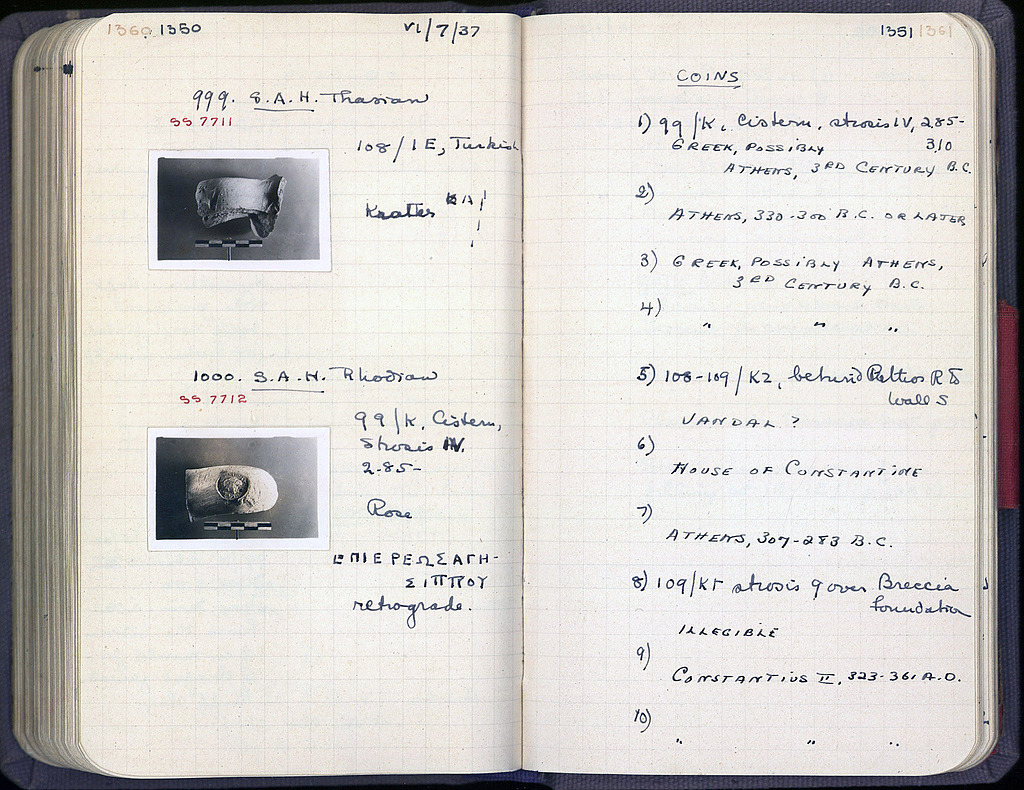 1360. 1350
VI/7/37
999. S.A.H. Thasian
SS 7711
108/1E, Turkish
Krater
1000. S.A.H. Rhodian
SS 7712
99/K, Cistern,
Strosis IV.
2.85-
Rose
ΕΠΙΕΡΕΩΣΑΓΗ-
ΣΙΠΠΟΥ
retrograde.
1351 1361
COINS
1) 99/K, Cistern, strosis IV, 2.85-
3.10
GREEK, POSSIBLY
ATHENS, 3RD CENTURY B.C.
2)
ATHENS, 330-300 B.C. OR LATER
3) GREEK, POSSIBLY ATHENS,
3RD CENTURY B.C.
4)
" " "
5) 108-109/K2, behind R
wall S
VANDAL ?
6)
HOUSE OF CONSTANTINE
7)
ATHENS, 307-283 B.C.
8) 109/KΓ strosis 9 over Breccia
foundation
ILLEGIBLE
9)
CONSTANTIUS II, 323-361 A.D.
10)
" " "